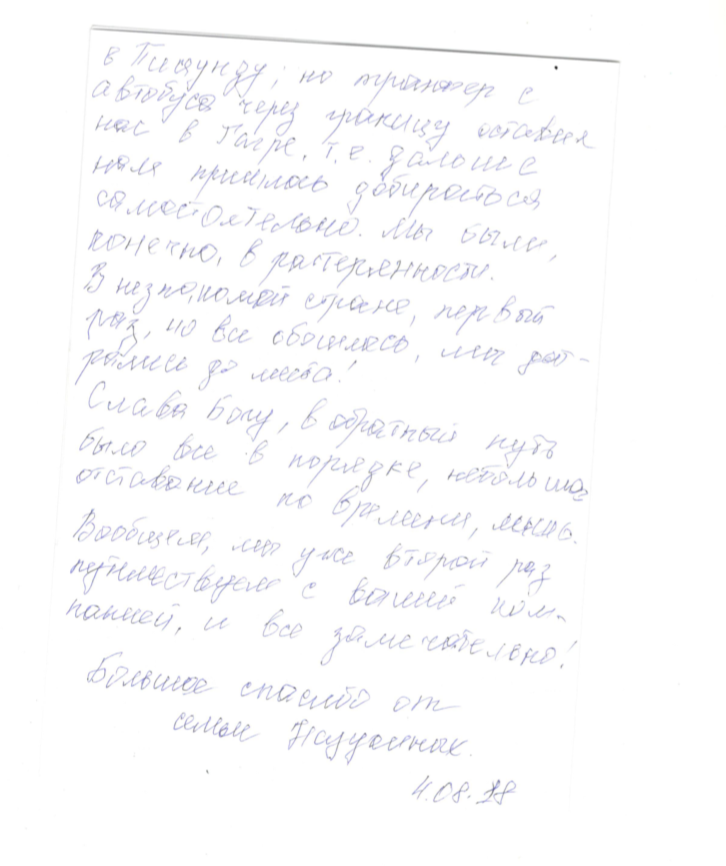 в Пицунду; но трансфер с
автобуса через границу оставил
нас в Гагре, т.е. дальше
нам пришлось добираться
самостоятельно. Мы были,
конечно, в растерянности.
В незнакомой стране, первый
раз, но все обошлось, мы доб-
рались до места!
Слава Богу, в обратный путь
было все в порядке, небольшое
отставание по времени, лишь.
Вообщем, мы уже второй раз
путешествуем с вашей ком-
панией, и все замечательно!
Большое спасибо от
семьи
4.08.18